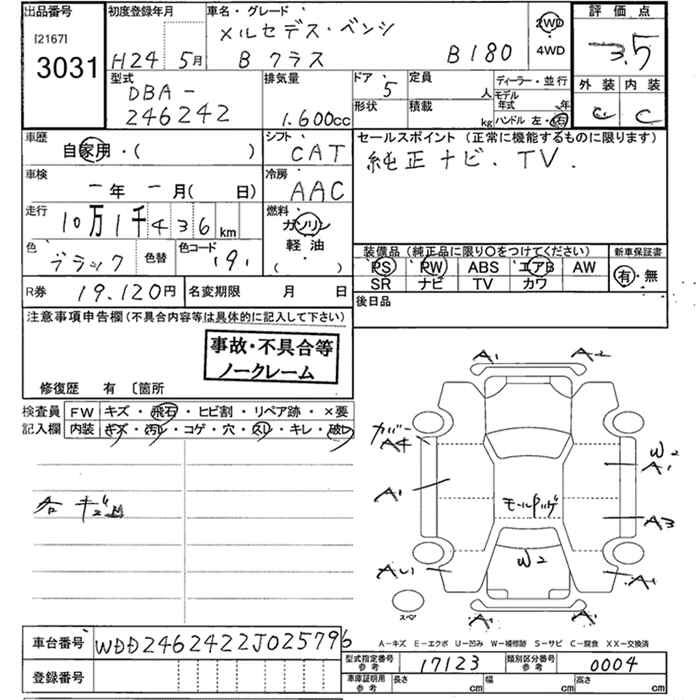 出品番号 初度登録年月 車名・グレード 評価点
[2167]
3031
H24 5月
メルセデス・ベンツ
B クラス B180
2WD
・
4WD
3.5
外装 内装
C C
型式 排気量 ドア 定員 ディーラー・並行
DBA-
246242
1.600cc
5
人
モデル年式 年
形状 積載 kg ハンドル 左・右
車歴 シフト セールスポイント (正常に機能するものに限ります)
自家用・( )
CAT
純正ナビ. TV.
車検 冷房
一年 一月( 日)
AAC
走行 燃料
10万1千436km
ガソリン
軽油
( )
色 ブラック 色替 色コード 191
装備品 (純正品に限り○をつけてください) 新車保証書
PS PW ABS エアB AW
SR ナビ TV カワ
有・無
R券 19.120円 名変期限 月 日
後日品
注意事項申告欄 (不具合内容等は具体的に記入して下さい)
事故・不具合等
ノークレーム
修復歴 有 〔箇所
検査員 FW キズ・飛石・ヒビ割・リペア跡・×要
記入欄 内装 キズ・汚レ・コゲ・穴・スレ・キレ・破レ
A1 A2
A4
W2
A1
A1
A3
W2
A1
A1
A1
スペ
A－キズ E－エクボ U－凹み W－補修跡 S－サビ C－腐食 XX－交換済
車台番号 WDD2462422J025796
登録番号
型式指定番号 参考 17123 類別区分番号 参考 0004
車庫証明用 参考 長さ cm 幅 cm 高さ cm